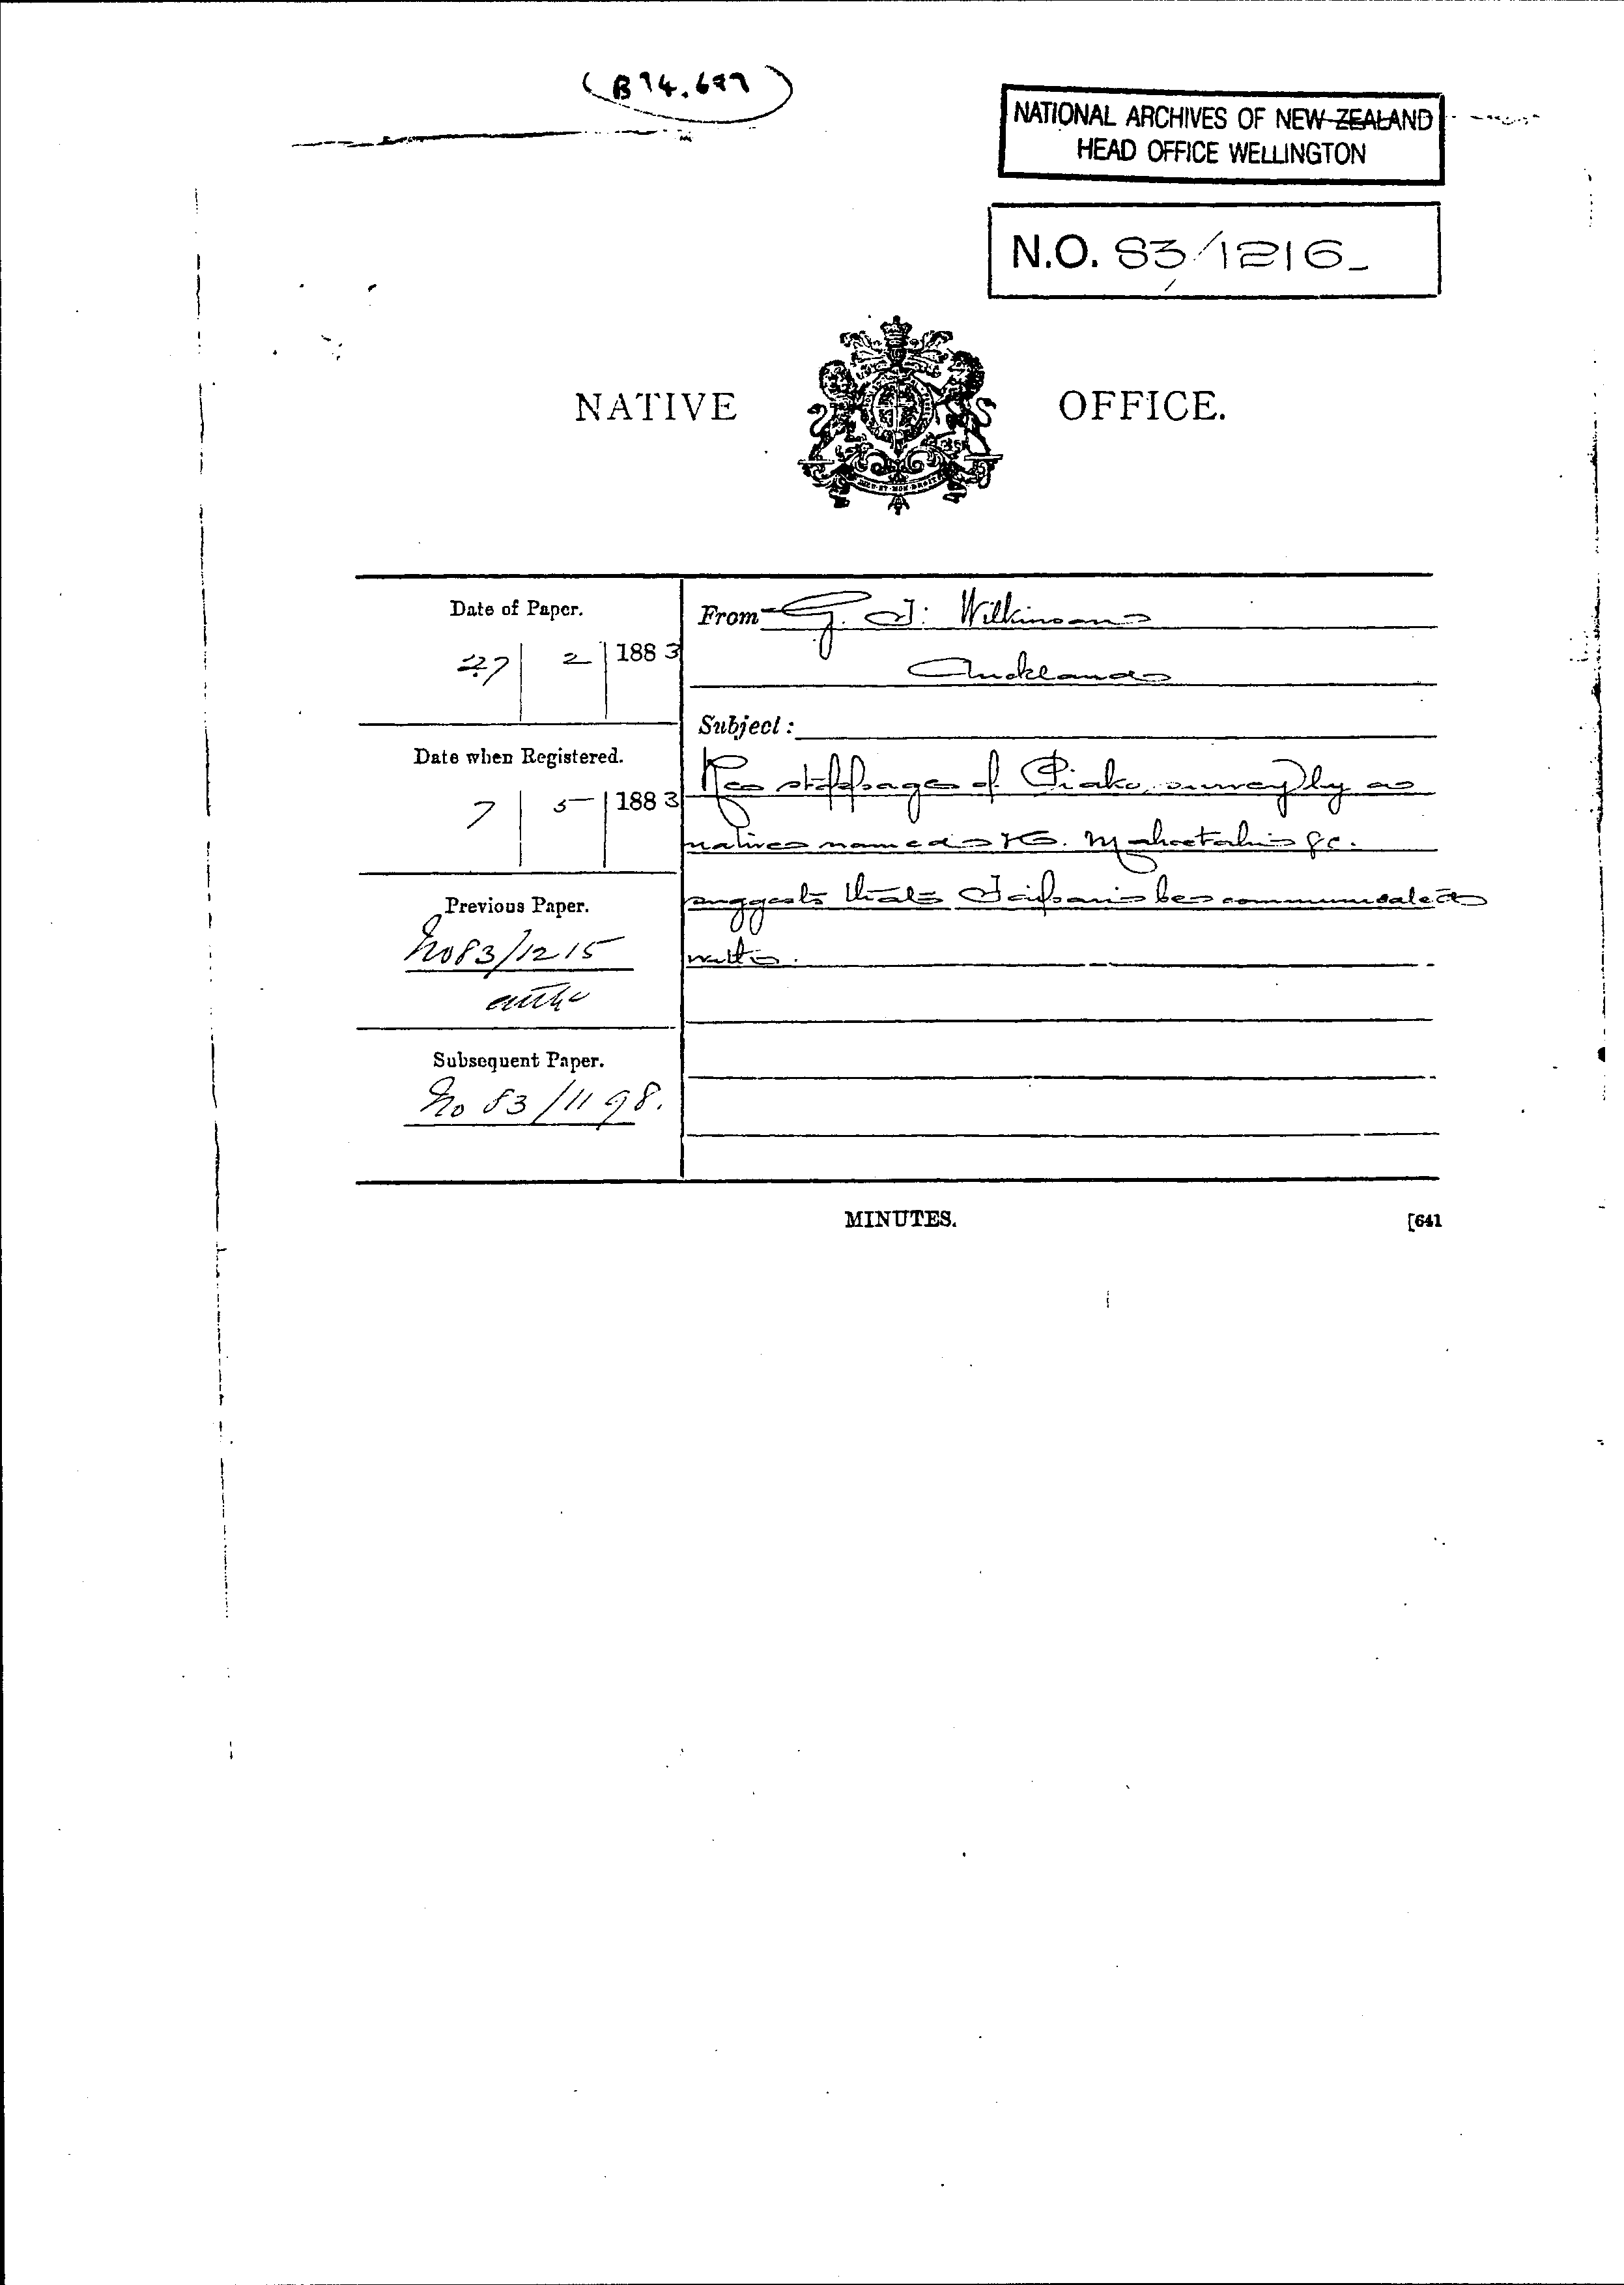 (B94.677)
NATIONAL ARCHIVES OF NEW ZEALAND
HEAD OFFICE WELLINGTON
N.O. 83/1216
NATIVE OFFICE.
DIEU ET MON DROIT
Date of Paper.
27 2 1883
From G. T. Wilkinson
Auckland
Subject:
Date when Registered.
7 5 1883
Re stoppage of Piako survey by a
native named &c.
suggests that Taipari be communicated
with.
Previous Paper.
No 83/1215
Subsequent Paper.
No 83/1198.
MINUTES.
[641